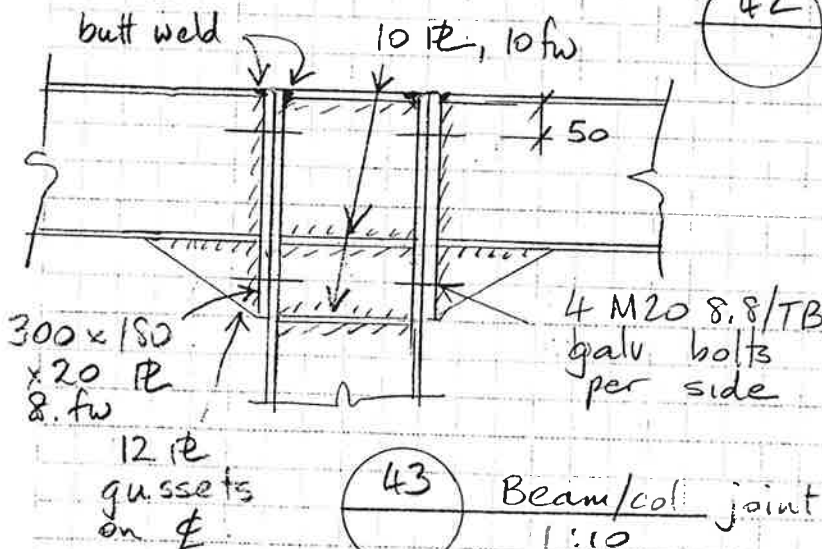 42
butt weld
10 PL, 10 fw
50
300 x 180
x 20 PL
8. fw
4 M20 8.8/TB
galv bolts
per side
12 PL
gussets
on ℄
43
Beam/col joint
1:10